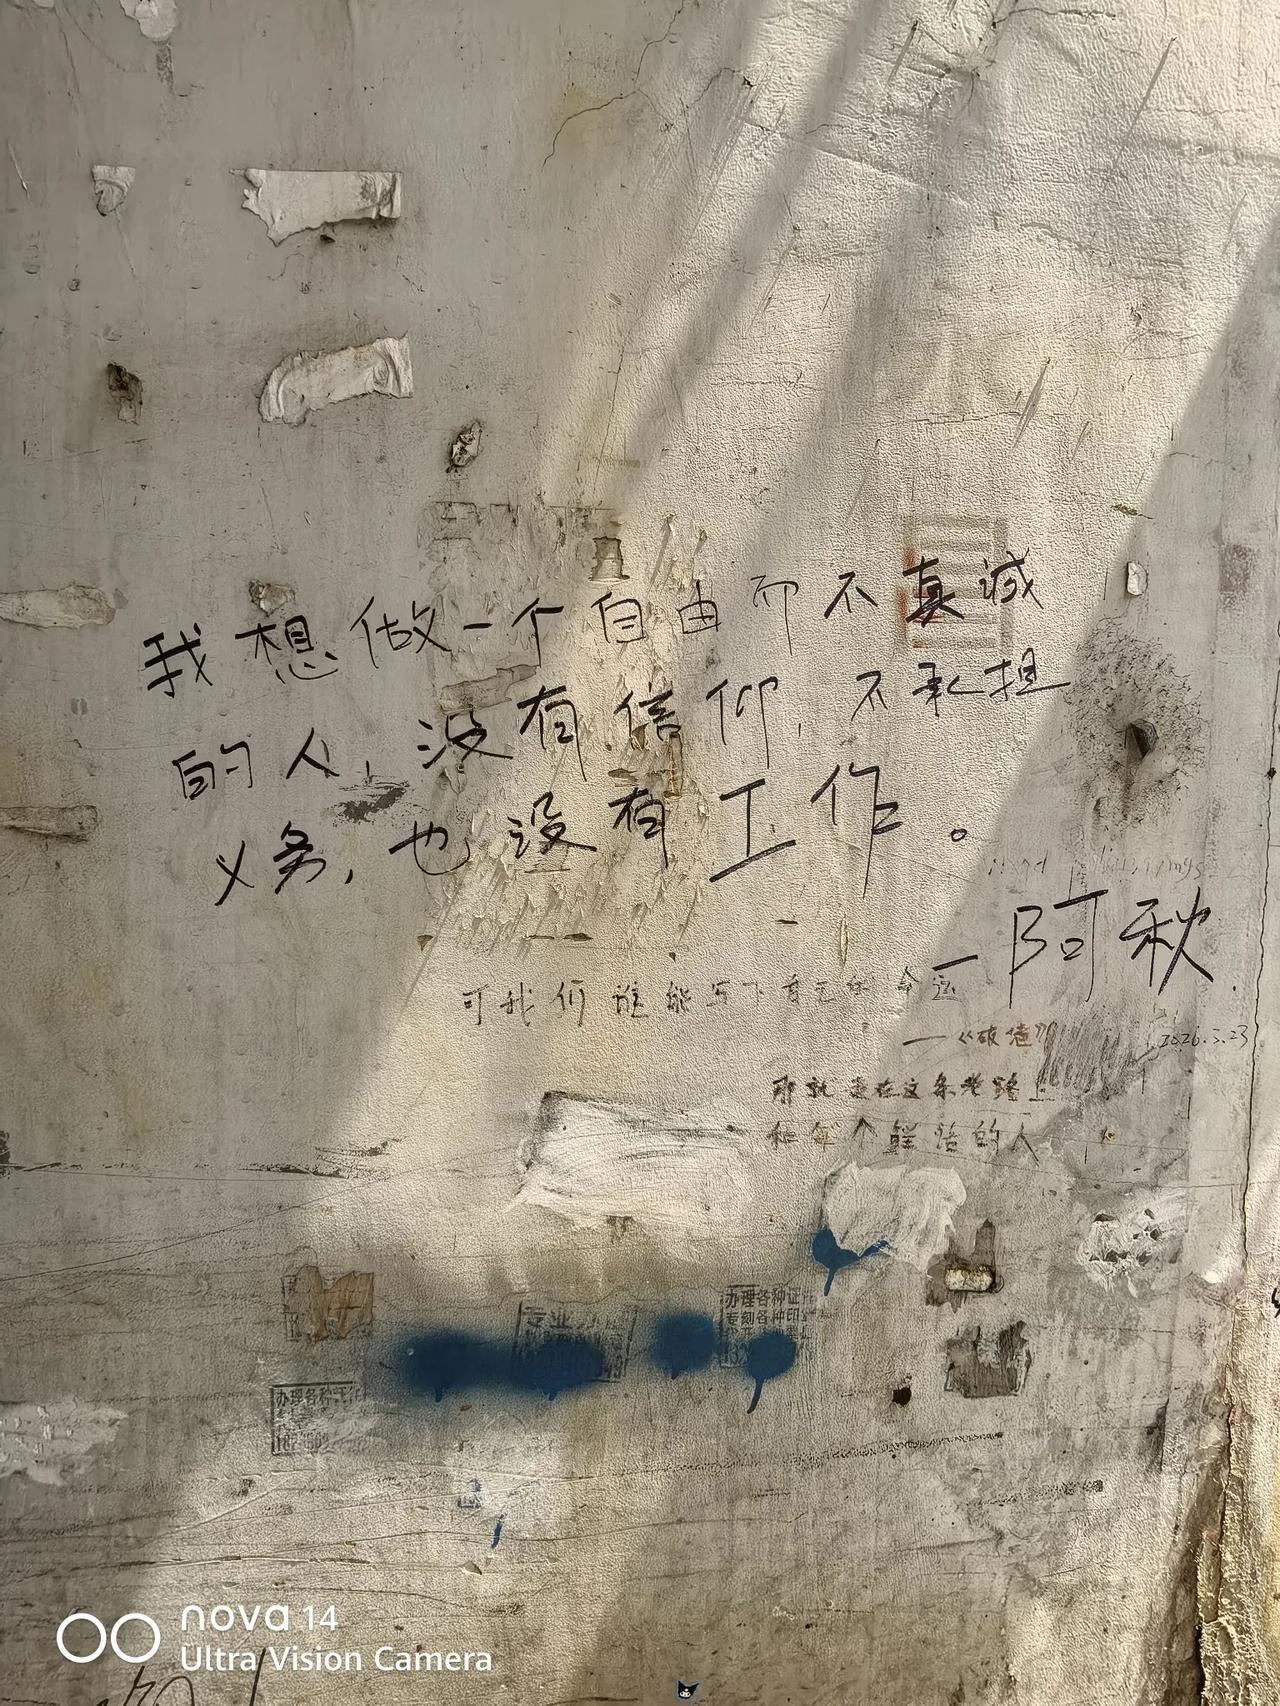 我想做一个自由而不真诚
的人，没有信仰，不承担
义务，也没有工作。
—阿秋
可我们谁能写下自己的命运
—《破值》
2026.3.23
那就走在这条老路上
和每个鲜活的人
专业
办理各种证件
专刻各种印
办理各种证件
nova 14
Ultra Vision Camera